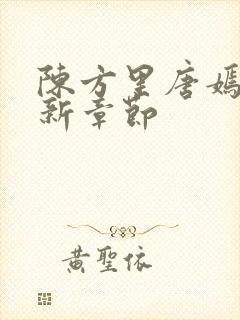 陳方里唐嫣
新章節
黃聖依